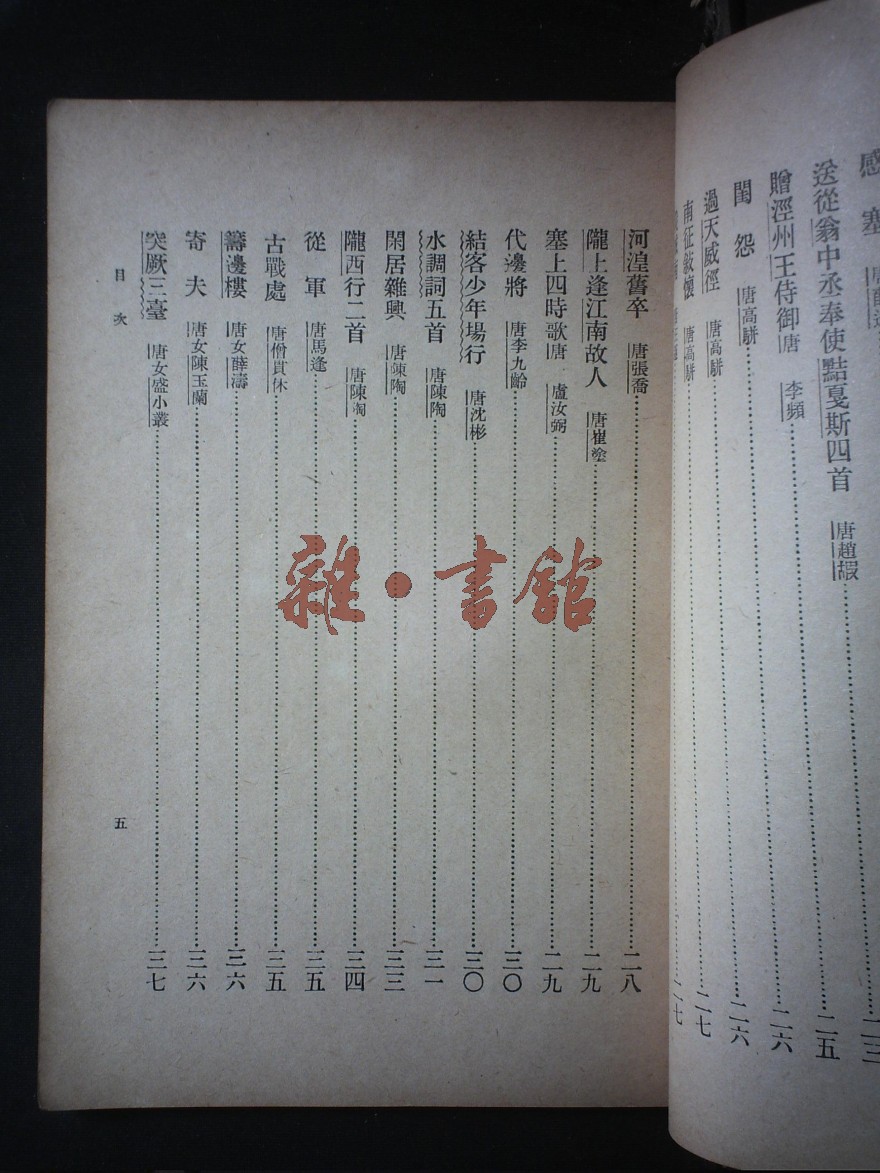 感塞
送從翁中丞奉使黠戛斯四首 唐趙嘏 二五
贈涇州王侍御 唐 李頻 二六
閨怨 唐高駢 二六
過天威徑 唐高駢 二七
南征敘懷 唐高駢 二七
河湟舊卒 唐張喬 二八
隴上逢江南故人 唐崔塗 二九
塞上四時歌 唐 盧汝弼 二九
代邊將 唐李九齡 三〇
結客少年場行 唐沈彬 三〇
水調詞五首 唐陳陶 三一
閑居雜興 唐陳陶 三三
隴西行二首 唐陳陶 三四
從軍 唐馬逢 三五
古戰處 唐僧貫休 三五
籌邊樓 唐女薛濤 三六
寄夫 唐女陳玉蘭 三六
突厥三臺 唐女盛小叢 三七
目次
五
雜·書館